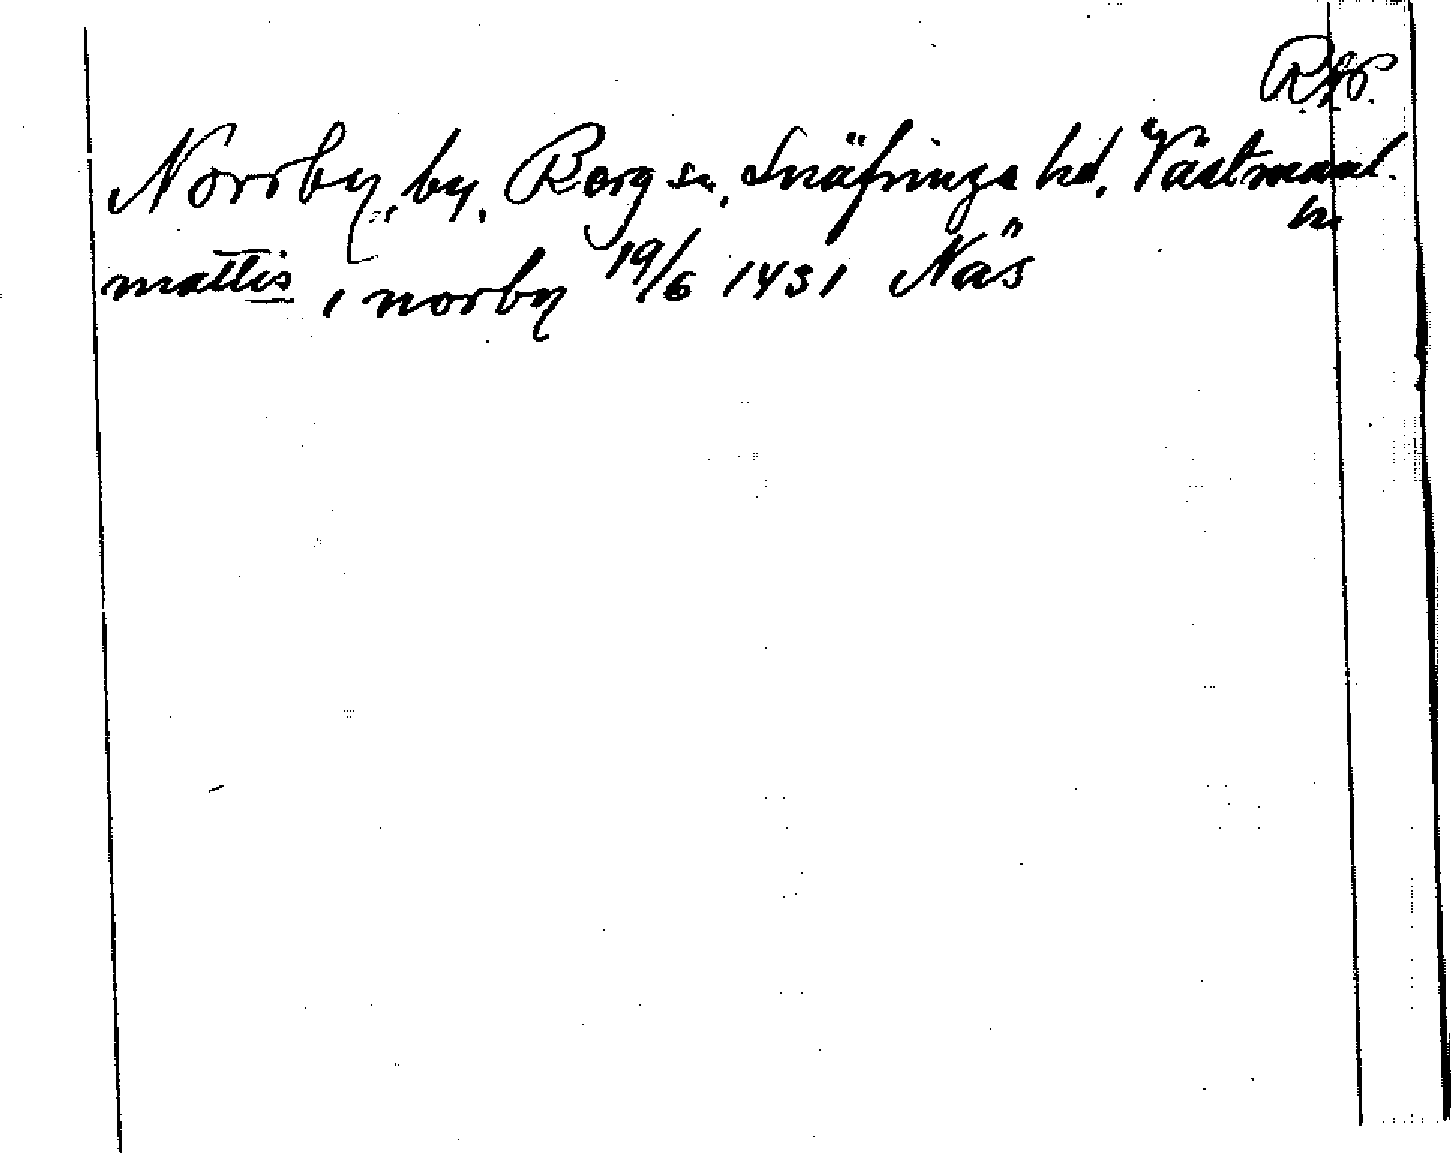 Norrby, by, Berg sn, Snäfringe hd, Västmanl.
ln
mattis i norby 19/6 1431 Näs